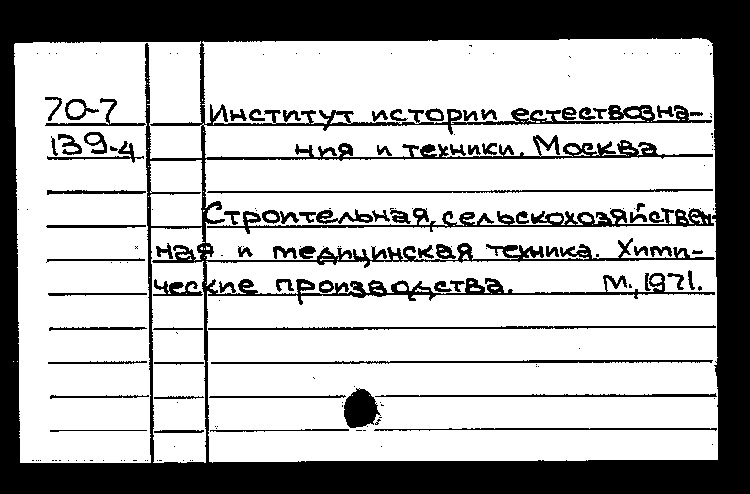 70-7 Институт истории естествозна-
139-4 ния и техники. Москва.
Строительная, сельскохозяйствен-
ная и медицинская техника. Хими-
ческие производства. М., 1971.